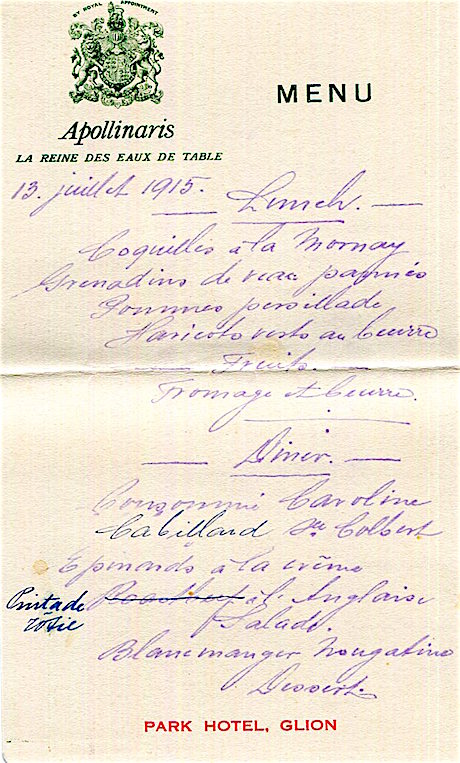 BY ROYAL APPOINTMENT
MENU
Apollinaris
LA REINE DES EAUX DE TABLE
13. juillet 1915.
Lunch.
Coquilles à la Mornay
Grenadins de veau pannés
Pommes persillade
Haricots verts au beurre
Fruits.
Fromage et beurre.
Diner.
Consommé Caroline
Cabillaud Sce Colbert
Epinards à la crème
Pintade Roastbeef à l'Anglaise
rôtie Salade.
Blancmanger Nougatine
Dessert.
PARK HOTEL, GLION